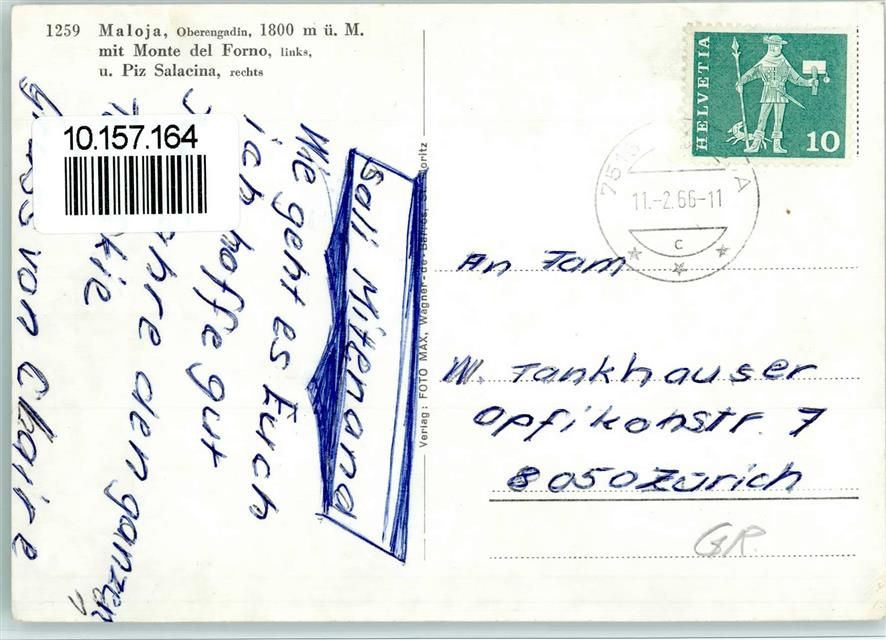 1259 Maloja, Oberengadin, 1800 m ü. M.
mit Monte del Forno, links,
u. Piz Salacina, rechts
10.157.164
Sali Mitenand
Wie geht es Euch
ich hoffe gut
den ganzen
Gruss von Claire
Verlag: FOTO MAX, Wagner-de-Barros, St. Moritz
HELVETIA
10
7516
11.-2.66-11
C
An Fam
W. Tankhauser
Opfikonstr. 7
8050 Zürich
GR.